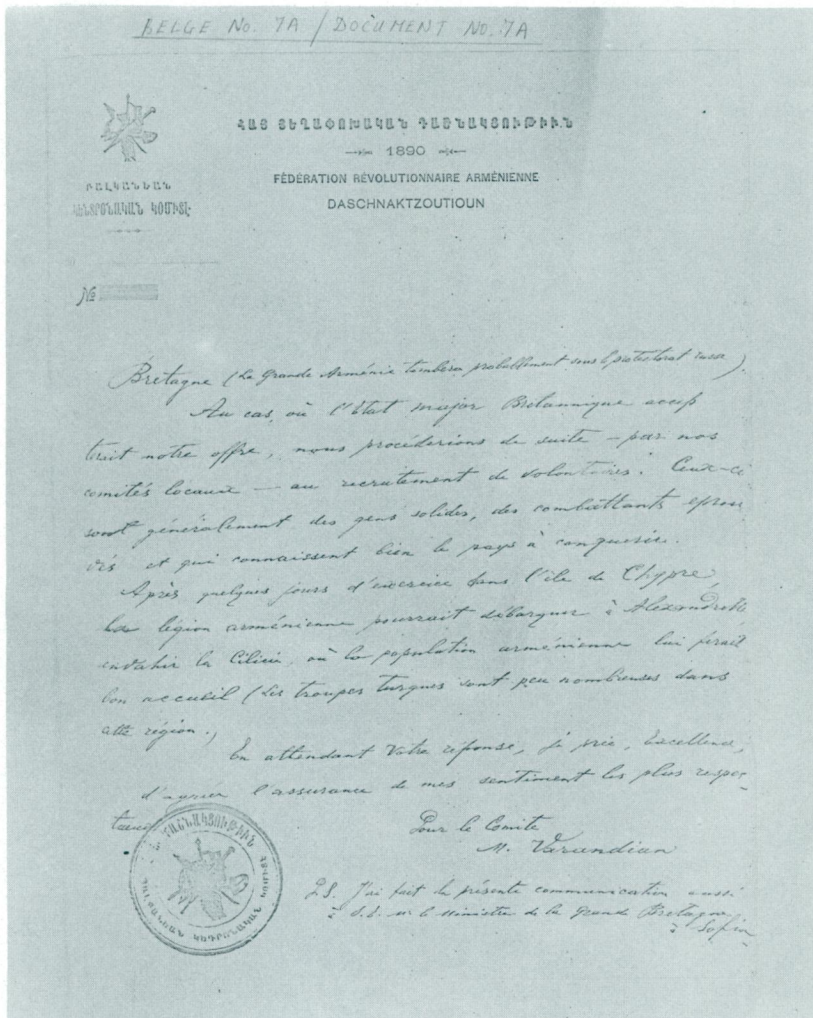 BELGE No. 7A / DOCUMENT NO. 7A
ՀԱՅ ՅԵՂԱՓՈԽԱԿԱՆ ԴԱՇՆԱԿՑՈՒԹԻՒՆ
1890
FÉDÉRATION RÉVOLUTIONNAIRE ARMÉNIENNE
DASCHNAKTZOUTIOUN
ԲԱԼԿԱՆԵԱՆ
ԿԵՆՏՐՈՆԱԿԱՆ ԿՈՄԻՏԷ
№
Bretagne (La Grande Arménie tombera probablement sous le protectorat russe).
Au cas, où l'Etat major Britannique accep
terait notre offre, nous procéderions de suite – par nos
comités locaux – au recrutement de volontaires. Ceux-ci
sont généralement des gens solides, des combattants eprou
vés et qui connaissent bien le pays à conquerir.
Après quelques jours d'exercice dans l'île de Chypre,
la légion arménienne pourrait débarquer à Alexandrette
envahir la Cilicie, où la population arménienne lui ferait
bon accueil (Les troupes turques sont peu nombreuses dans
cette région.)
En attendant Votre réponse, je prie, Excellence,
d'agréer l'assurance de mes sentiment les plus respec-
tueux
Pour le Comité
M. Varandian
P.S. J'ai fait la présente communication aussi
à S.E. le Ministre de la Grande Bretagne
à Sofia
ԴԱՇՆԱԿՑՈՒԹԻՒՆ